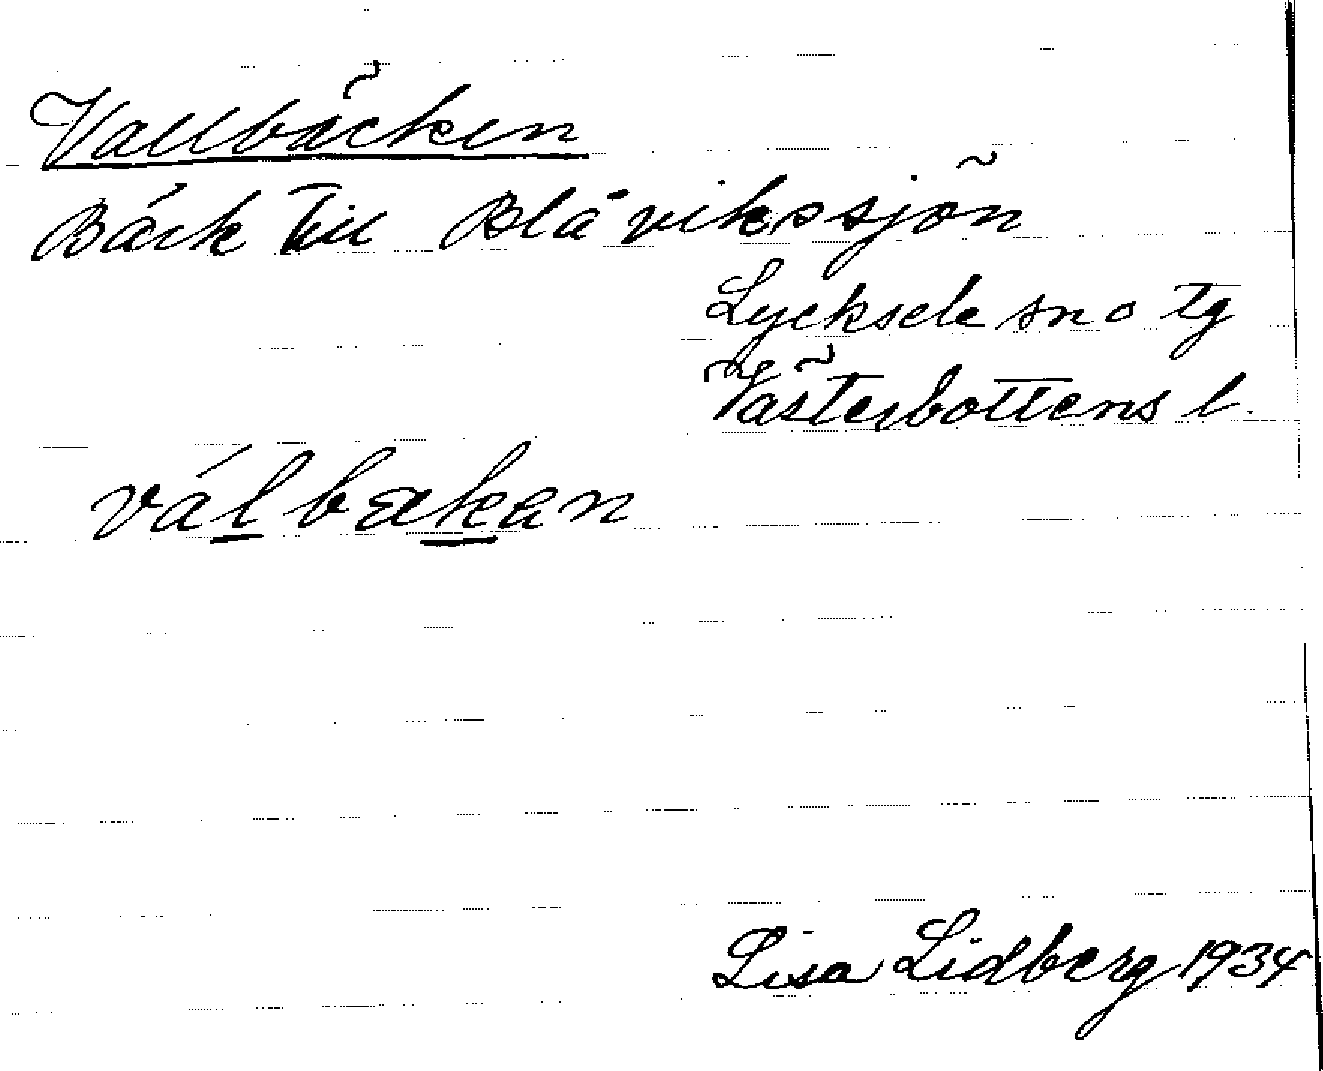 Vallbäcken
Bäck till Blåvikssjön
Lycksele sn o tg
Västerbottens l.
válbækan
Lisa Lidberg 1934